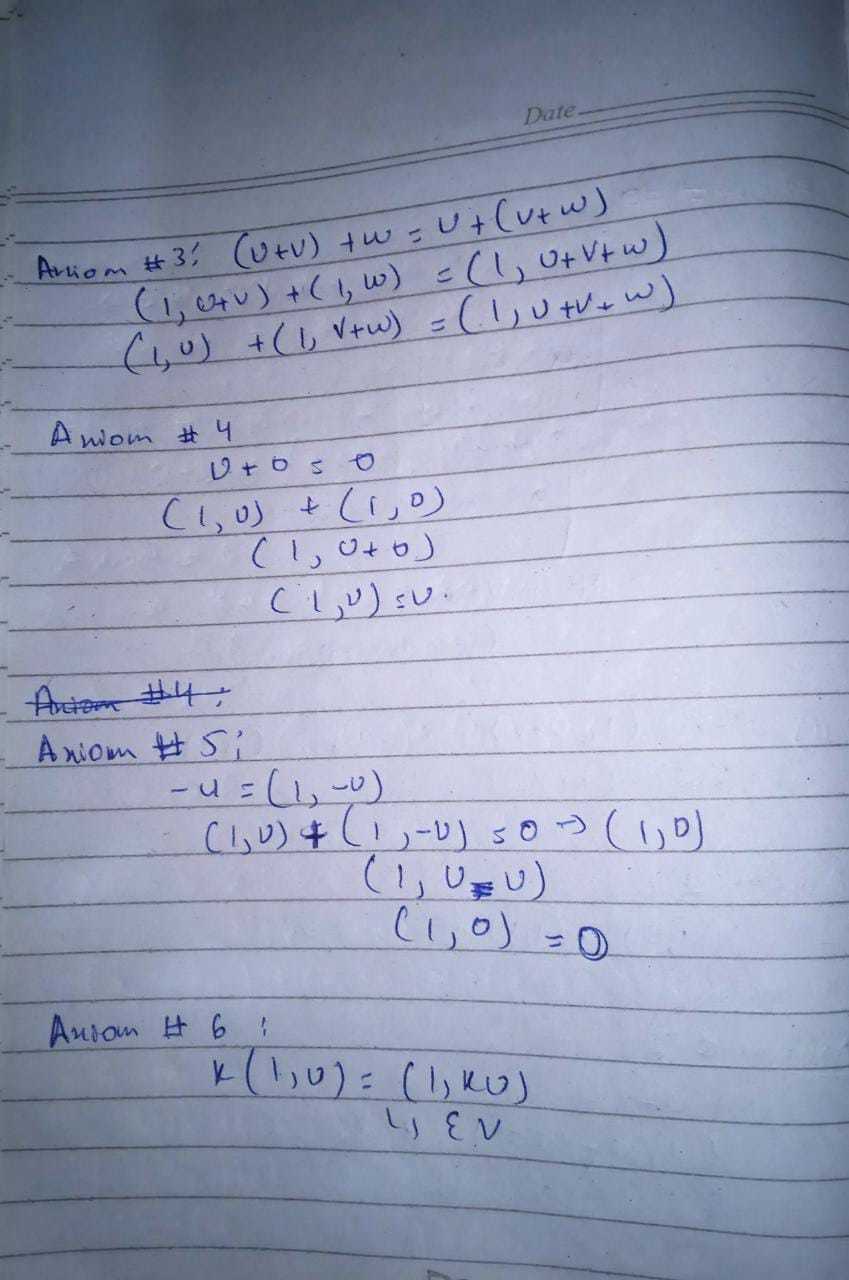 Date
Axiom #3: (U+V) +W = U+(V+W)
(1, U+V) + (1, W) = (1, U+V+W)
(1,U) + (1, V+W) = (1, U+V+W)
Axiom # 4
U+0 = 0
(1,U) + (1,0)
(1, U+0)
(1,U) = U.
Axiom #4 :
Axiom # 5 ;
-u = (1, -U)
(1,U) + (1,-U) = 0 → (1,0)
(1, U-U)
(1,0) = 0
Axiom # 6 :
K(1,U) = (1, KU)
↳ ε V